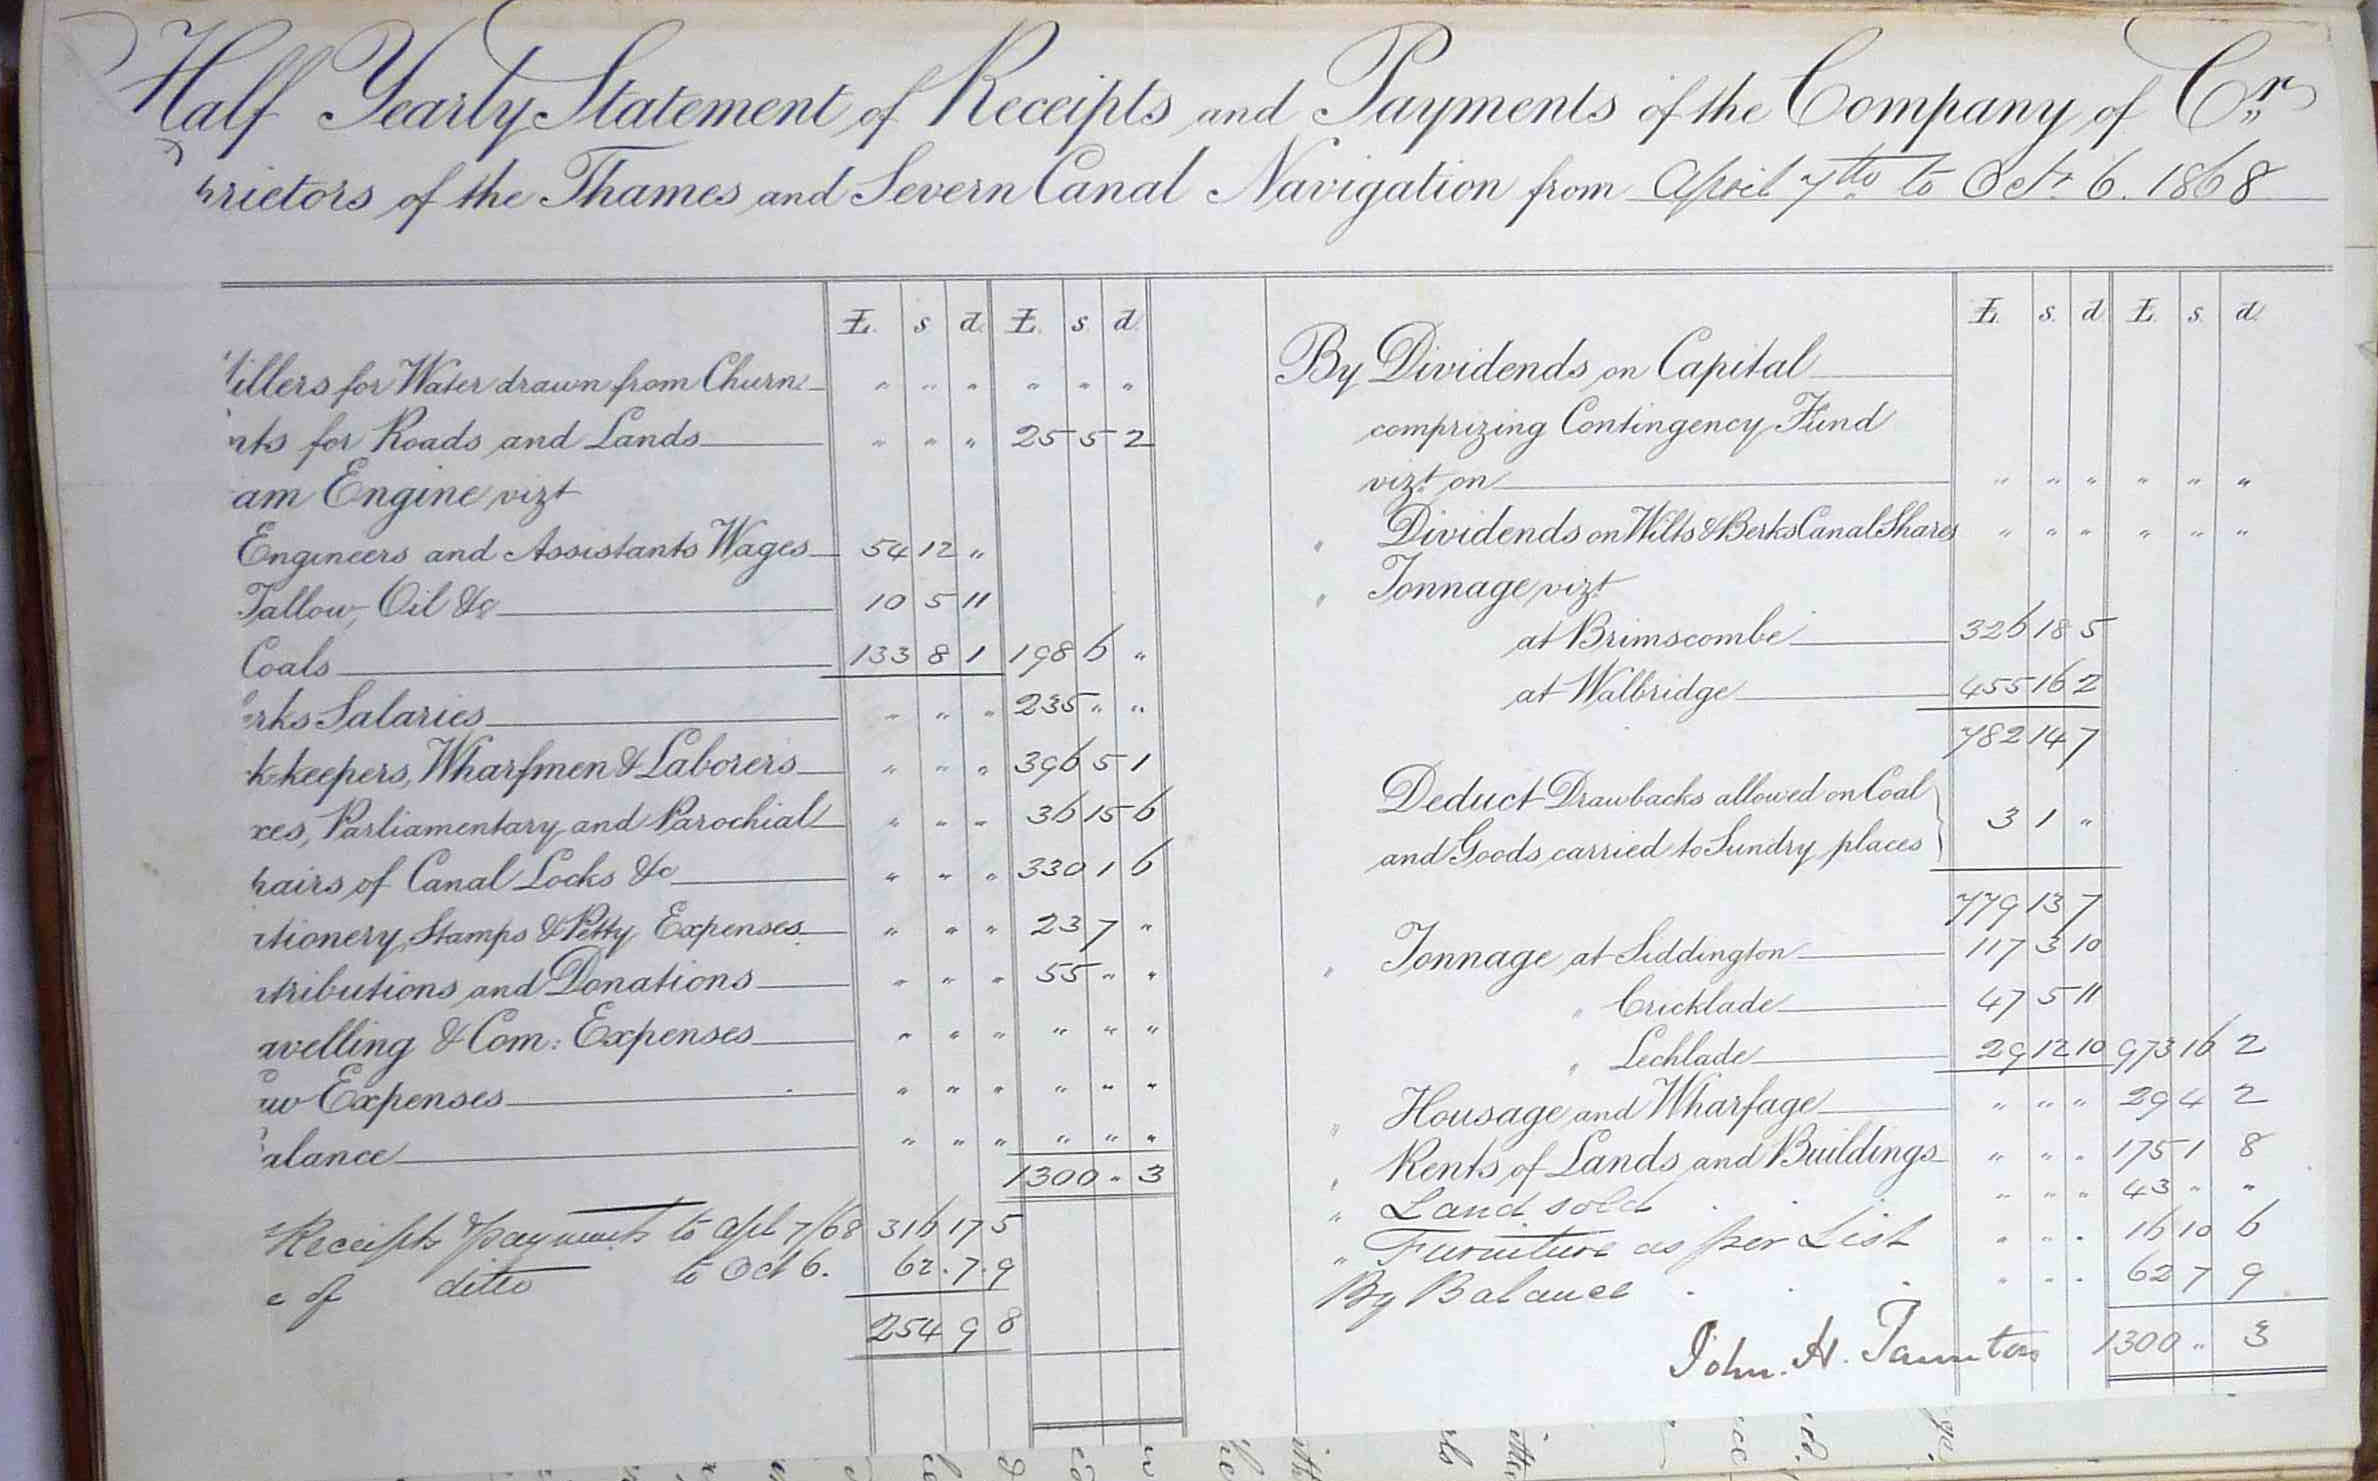 Half Yearly Statement of Receipts and Payments of the Company of Cr
rietors of the Thames and Severn Canal Navigation from April 7th to Octr 6. 1868
£. s d. £. s. d.
illers for Water drawn from Churn " " " " " "
nts for Roads and Lands " " " 25 5 2
am Engine vizt
Engineers and Assistants Wages 54 12 "
Tallow, Oil &c 10 5 11
Coals 133 8 1 198 6 "
rks Salaries " " " 235 " "
kkeepers, Wharfmen & Laborers " " " 396 5 1
xes, Parliamentary and Parochial " " " 36 15 6
pairs of Canal Locks &c " " " 330 1 6
tionery, Stamps & Petty Expenses " " " 23 7 "
tributions and Donations " " " 55 " "
avelling & Com: Expenses " " " " " "
aw Expenses " " " " " "
alance " " " " " "
1300 " 3
Receipts & payments to Apl 7/68 316 17 5
e of ditto to Oct 6. 62 . 7 . 9
254 9 8
£. s. d £. s. d.
By Dividends on Capital
comprizing Contingency Fund
vizt. on " " " " " "
" Dividends on Wilts & Berks Canal Shares " " " " " "
" Tonnage vizt
at Brimscombe 326 18 5
at Walbridge 455 16 2
782 14 7
Deduct Drawbacks allowed on Coal
and Goods carried to Sundry places 3 1 "
779 13 7
" Tonnage at Siddington 117 3 10
" Cricklade 47 5 11
" Lechlade 29 12 10 973 16 2
" Housage and Wharfage " " " 29 4 2
" Rents of Lands and Buildings " " " 175 1 8
" Land sold " " " 43 " "
" Furniture as per List " " " 16 10 6
By Balance " " " 62 7 9
John. H. Taunton 1300 " 3